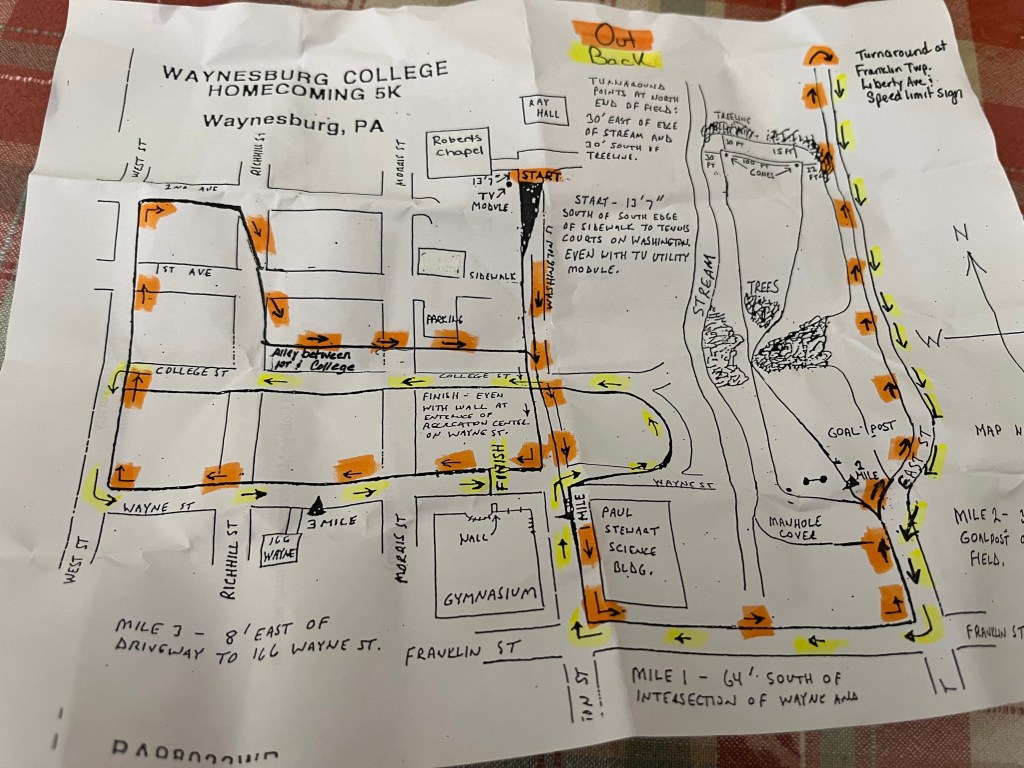 Out
Back
WAYNESBURG COLLEGE
HOMECOMING 5K
Waynesburg, PA
Turnaround at
Franklin Twp.
Liberty Ave. &
Speed limit sign
TURNAROUND
POINTS AT NORTH
END OF FIELD:
30' EAST OF EDGE
OF STREAM AND
30' SOUTH OF
TREELINE.
RAY
HALL
Roberts
Chapel
TREELINE
30 FT
15 FT
30
FT
100 FT
CONES
WEST ST
RICHHILL ST
MORRIS ST
2ND AVE
13'7"
TV
MODULE
START
START - 13'7"
SOUTH OF SOUTH EDGE
OF SIDEWALK TO TENNIS
COURTS ON WASHINGTON.
EVEN WITH TV UTILITY
MODULE.
WASHINGTON
1ST AVE
SIDEWALK
PARKING
STREAM
TREES
N
W
Alley between
1st & College
COLLEGE ST
COLLEGE ST
FINISH - EVEN
WITH WALL AT
ENTRANCE OF
RECREATION CENTER
ON WAYNE ST.
FINISH
GOAL POST
EAST ST
MAP N
2
MILE
WAYNE ST
WAYNE ST
3 MILE
166
WAYNE
WALL
GYMNASIUM
MILE
PAUL
STEWART
SCIENCE
BLDG.
MANHOLE
COVER
MILE 2 - 3
GOALPOST O
FIELD.
WEST ST
RICHHILL ST
MORRIS ST
MILE 3 - 8' EAST OF
DRIVEWAY TO 166 WAYNE ST.
FRANKLIN ST
FRANKLIN ST
ION ST
MILE 1 - 64' SOUTH OF
INTERSECTION OF WAYNE AND